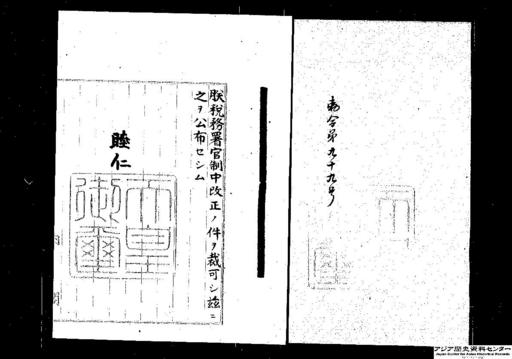 勅令第九十九号
朕税務署官制中改正ノ件ヲ裁可シ茲ニ
之ヲ公布セシム
睦仁
天皇
御璽
アジア歴史資料センター
Japan Center for Asian Historical Records